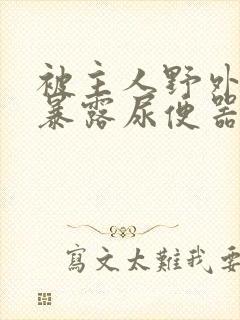 被主人野外
暴露尿便器
寫文太難我要